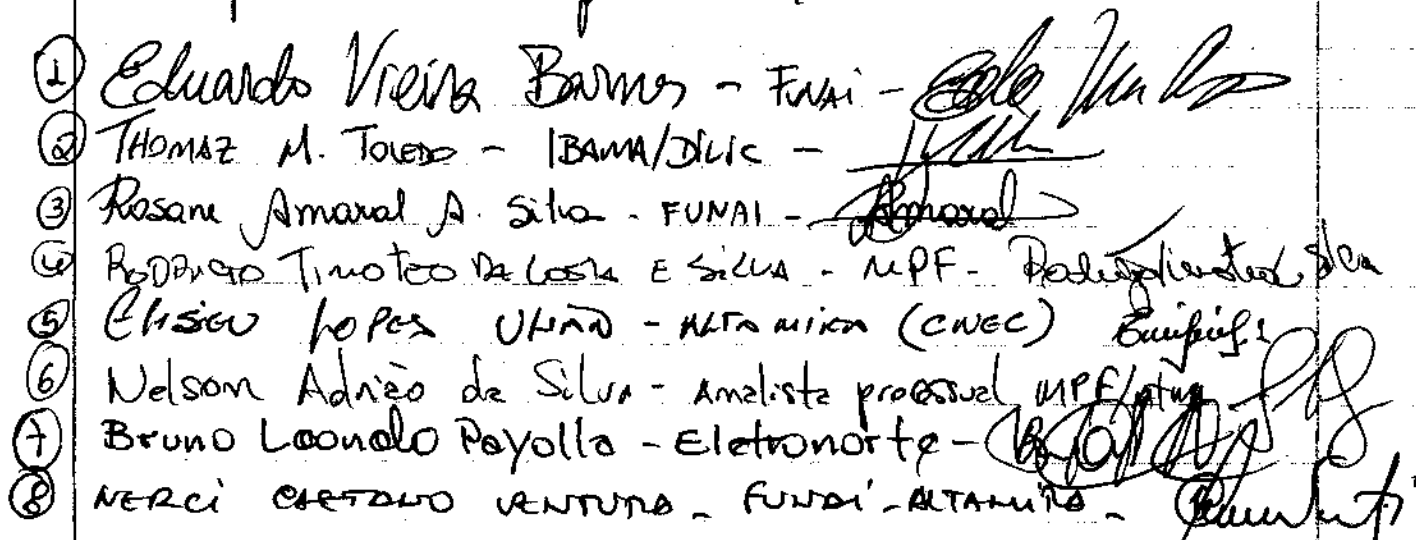 1 Eduardo Vieira Barnes - FUNAI -
2 THOMAZ M. TOLEDO - IBAMA/DILIC -
3 Rosane Amaral A. Silva - FUNAI - Amaral
4 RODRIGO TIMOTEO DA COSTA E SILVA - MPF - Rodrigo Timoteo C. Silva
5 Eliseu Lopes - ALTAMIRA (CNEC)
6 Nelson Adrião da Silva - Analista processual MPF/
7 Bruno Leonardo Payolla - Eletronorte -
8 NERCI CAETANO VENTURA - FUNAI - ALTAMIRA -